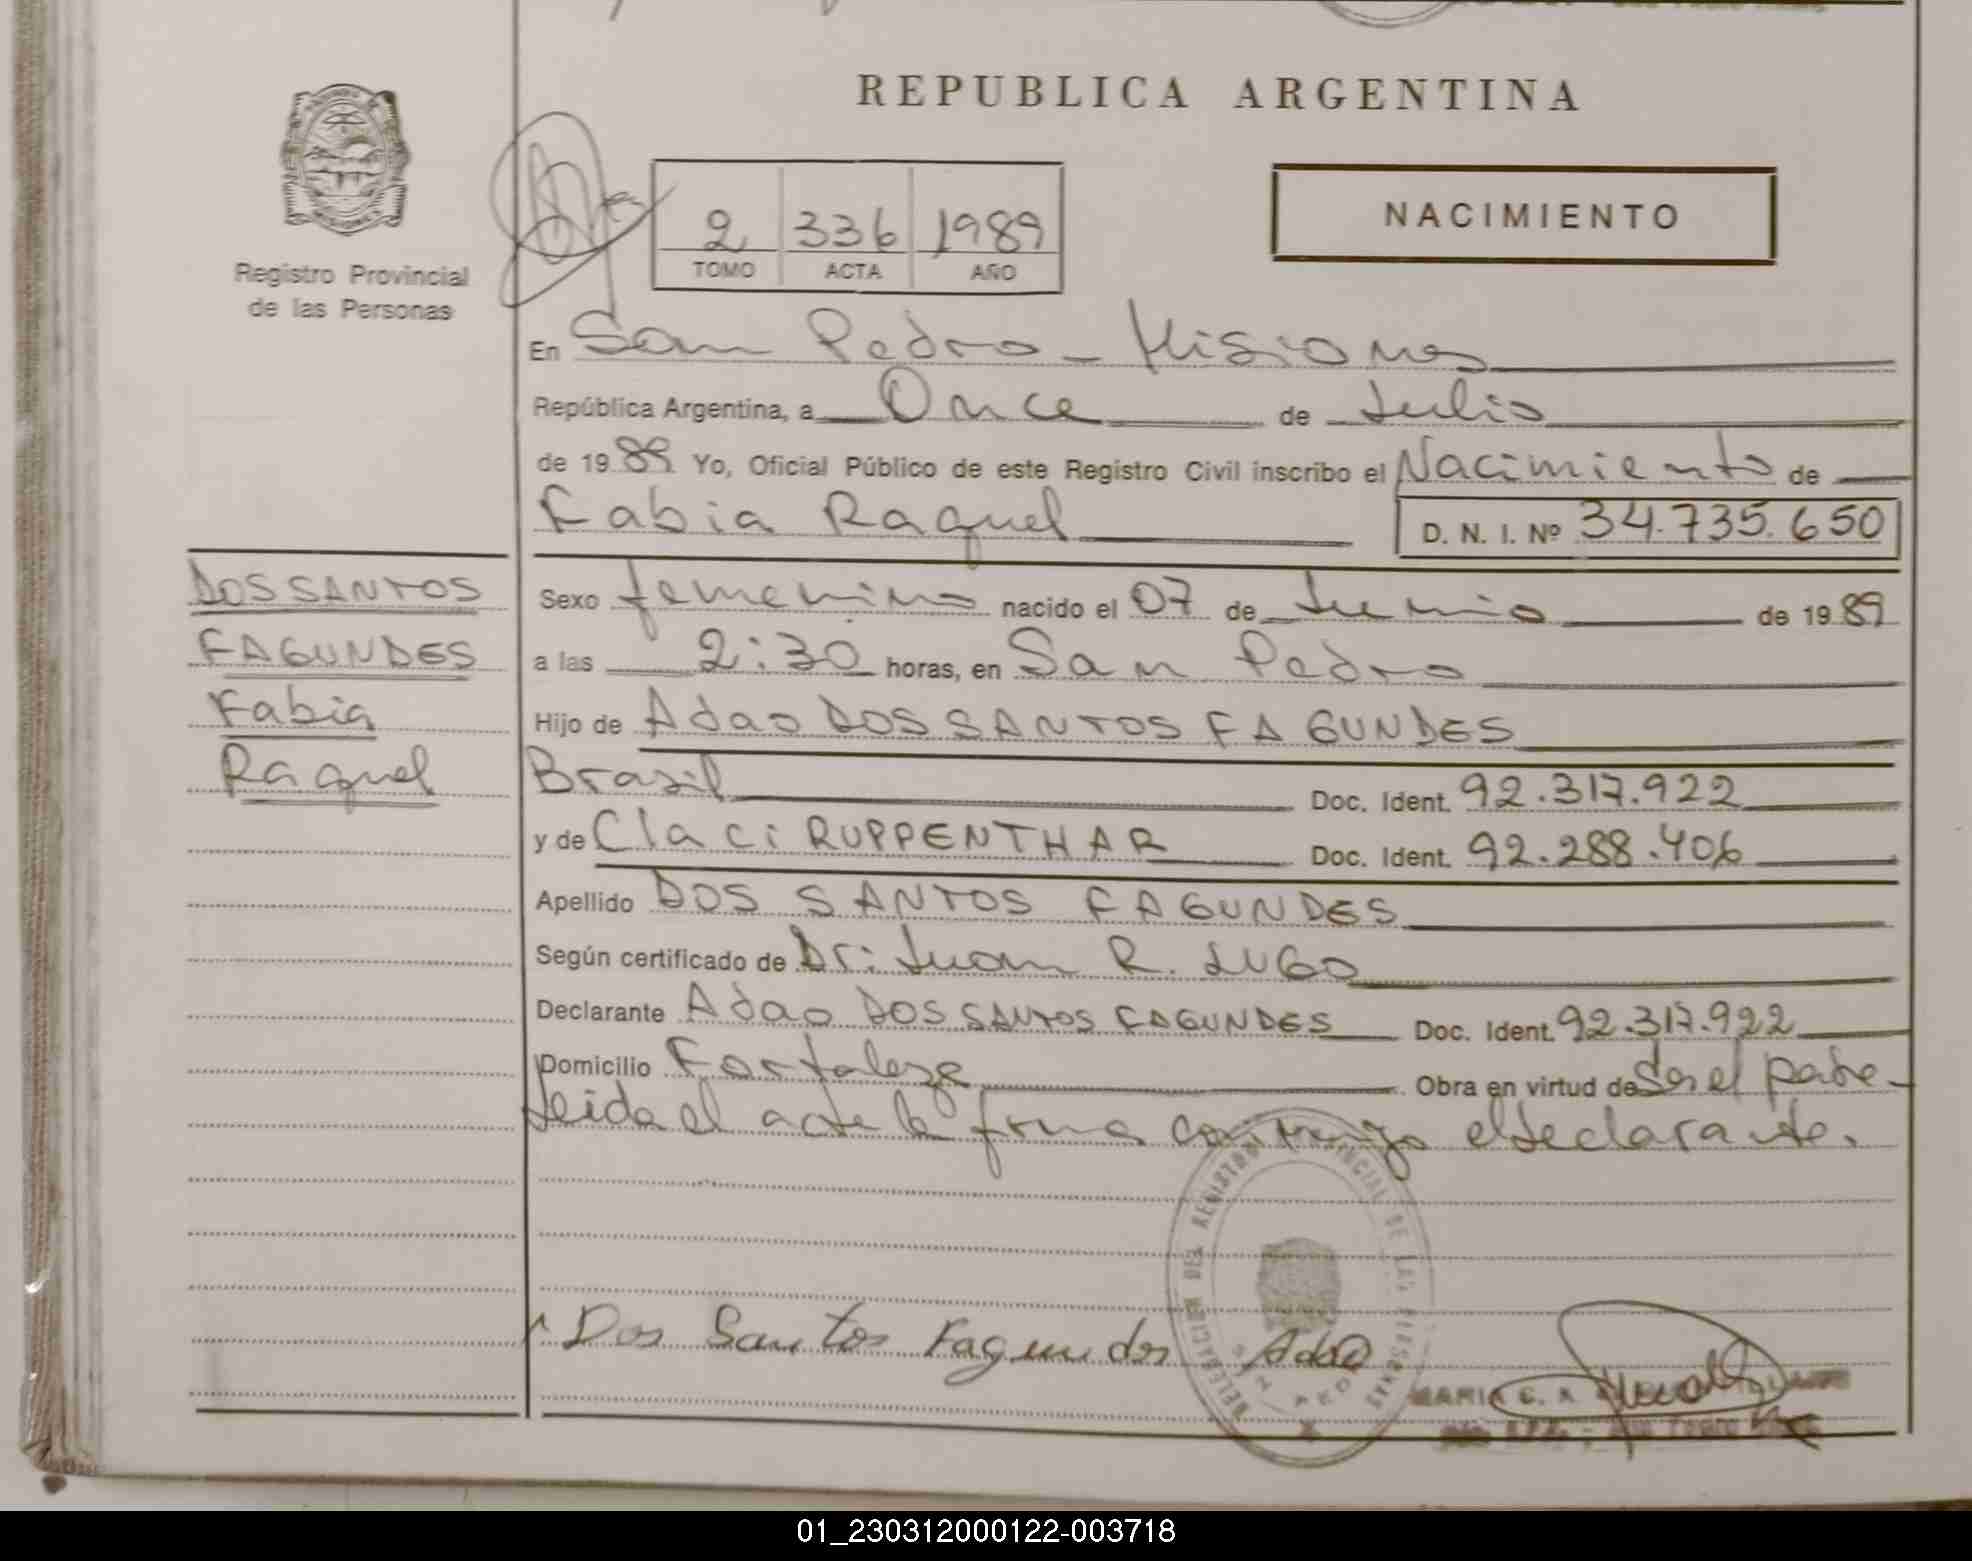 REPUBLICA ARGENTINA
Registro Provincial
de las Personas
2 336 1989
TOMO ACTA AÑO
NACIMIENTO
En San Pedro - Misiones
República Argentina, a Once de Julio
de 1989 Yo, Oficial Público de este Registro Civil inscribo el Nacimiento de
Fabia Raquel D. N. I. Nº 34.735.650
DOS SANTOS
FAGUNDES
Fabia
Raquel
Sexo femenino nacido el 07 de Junio de 1989
a las 2:30 horas, en San Pedro
Hijo de Adao DOS SANTOS FAGUNDES
Brasil Doc. Ident. 92.317.922
y de Claci RUPPENTHAR Doc. Ident. 92.288.406
Apellido DOS SANTOS FAGUNDES
Según certificado de Dr: Juan R. LUGO
Declarante Adao DOS SANTOS FAGUNDES Doc. Ident. 92.317.922
Domicilio Fortaleza Obra en virtud de Ser el padre -
Leida el acta la firma conmigo el declarante.
DELEGACION DEL REGISTRO PROVINCIAL DE LAS PERSONAS
SAN PEDRO
Dos Santos Fagundes Adao
MARIA
01_230312000122-003718